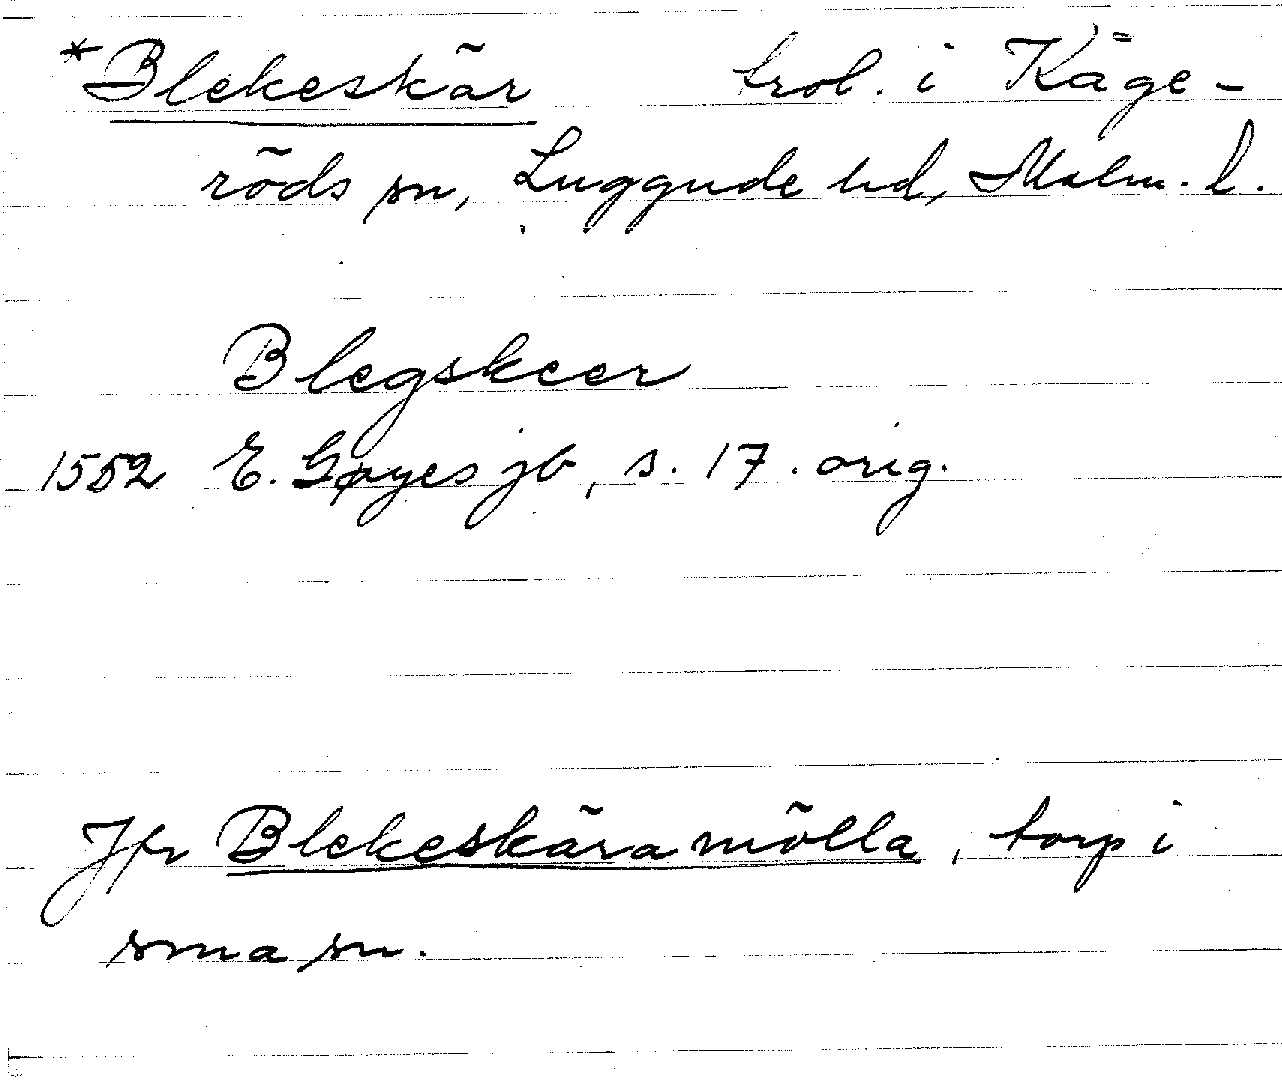 *Blekeskär trol. i Kåge-
röds sn, Luggude hd, Malm. l.
Blegskeer
1552 E. Gøyes jb, s. 17. orig.
Jfr Blekeskäramölla, torp i
sma sn.